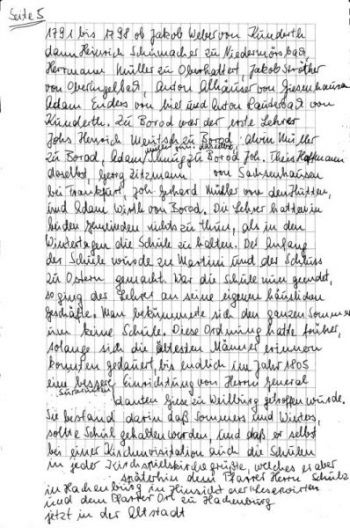 Seite 5
1791 bis 1798 ob Jakob Weber von Kunderth
dann Heinrich Schumacher zu Niedermörsbach,
Herrmann Müller zu Oberhattert, Jakob Ströther
von Oberingelbach, Anton Alhäuser von Giesenhausen
Adam Enders von hier und Anton Rauschat von
Kunderth. Zu Borod war der erste Lehrer
Johs Henrich Zu Borod Alwin Müller
zu Borod, Adam zu Borod Joh. Theis Hoffmann
daselbst, Georg Zitzmann von Sachsenhausen
bei Frankfurt, Joh. Gerhard Müller von den Hütten,
und Adam Wirth von Borod. Die Lehrer hatten in
beiden Gemeinden nichts zu thun, als in den
Wintertagen die Schule zu halten. Der Anfang
der Schule wurde zu Martini und der Schluss
zu Ostern gemacht. War die Schule nun geendet,
so ging der Lehrer an seine eigenen häuslichen
Geschäfte. Man bekümmerte sich den ganzen Sommer
um keine Schule. Diese Ordnung hatte früher,
solange sich die ältesten Männer erinnern
konnten gedauert, bis endlich im Jahr 1805
eine bessere Einrichtung von Herrn General
danten Giese zu Weilburg getroffen wurde.
Sie bestand darin daß Sommers und Winters,
sollte Schul gehalten werden, und daß er selbst
bei einer Kirchenvisitation auch die Schulen
in jeder Kirchspielskirche prüfte, welches er aber
späterhin dem Pfarrer Herrn Schulz
in Hachenburg in Hinsicht der Reservirten
und dem Pfarrer Ort zu Hachenburg
jetzt in der Altstadt